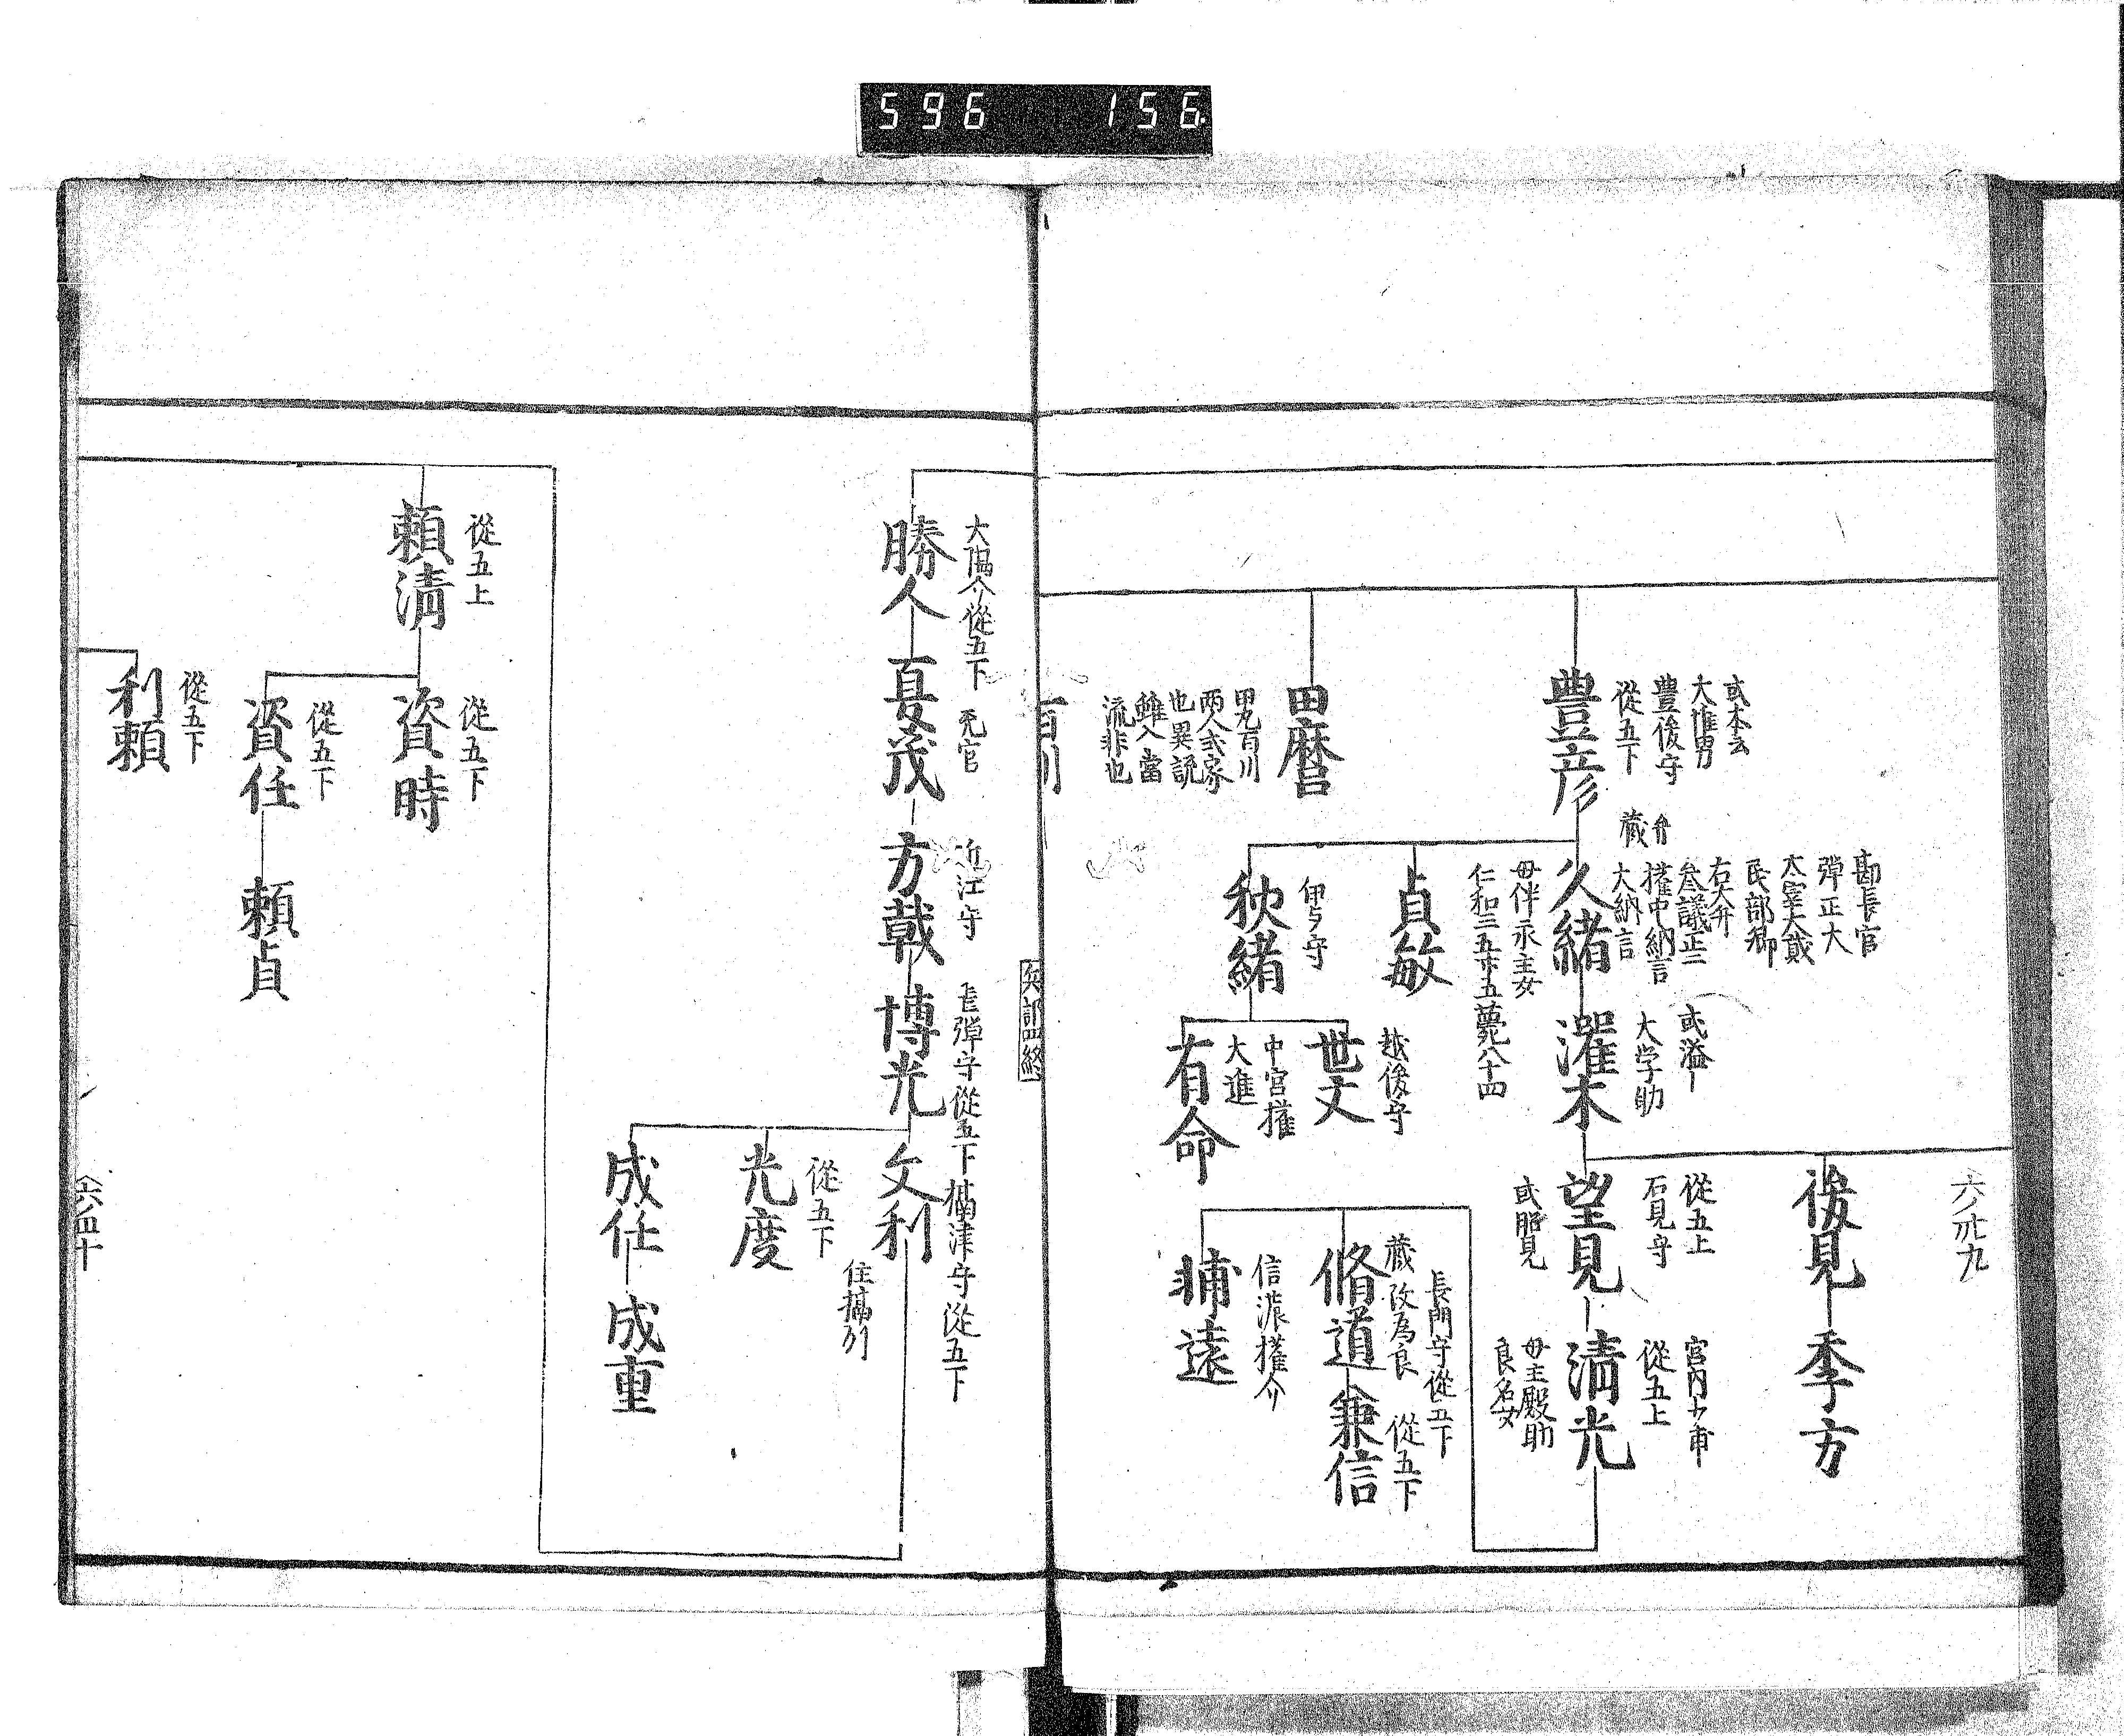 596 156
六ノ卅九
後見
季方
或本云
大進男
豊後守
從五下
豊彦
勘長官
弾正大
太宰大貳
民部卿
右大弁
参議正三
權中納言
大納言
弁
蔵
久緒
母伴永主女
仁和三五十五薨八十四
或溢
大学助
灌木
從五上
石見守
望見
或服見
宮内少甫
從五上
清光
母主殿助
良名女
貞敏
伊与守
秋緒
越後守
世丈
中宮權
大進
有命
長門守從五下
蔵改為良
脩道
從五下
兼信
信濃權介
輔遠
田麿
田丸百川
兩人式家
也異説
雖入當
流非也
百川
兵部四終
大隅介從五下
勝人
无官
夏茂
近江守
方戟
弾守從五下
博光
攝津守從五下
文利
住攝州
從五下
光度
成任
成重
從五上
頼清
從五下
資時
從五下
資任
頼貞
從五下
利頼
六ノ四十